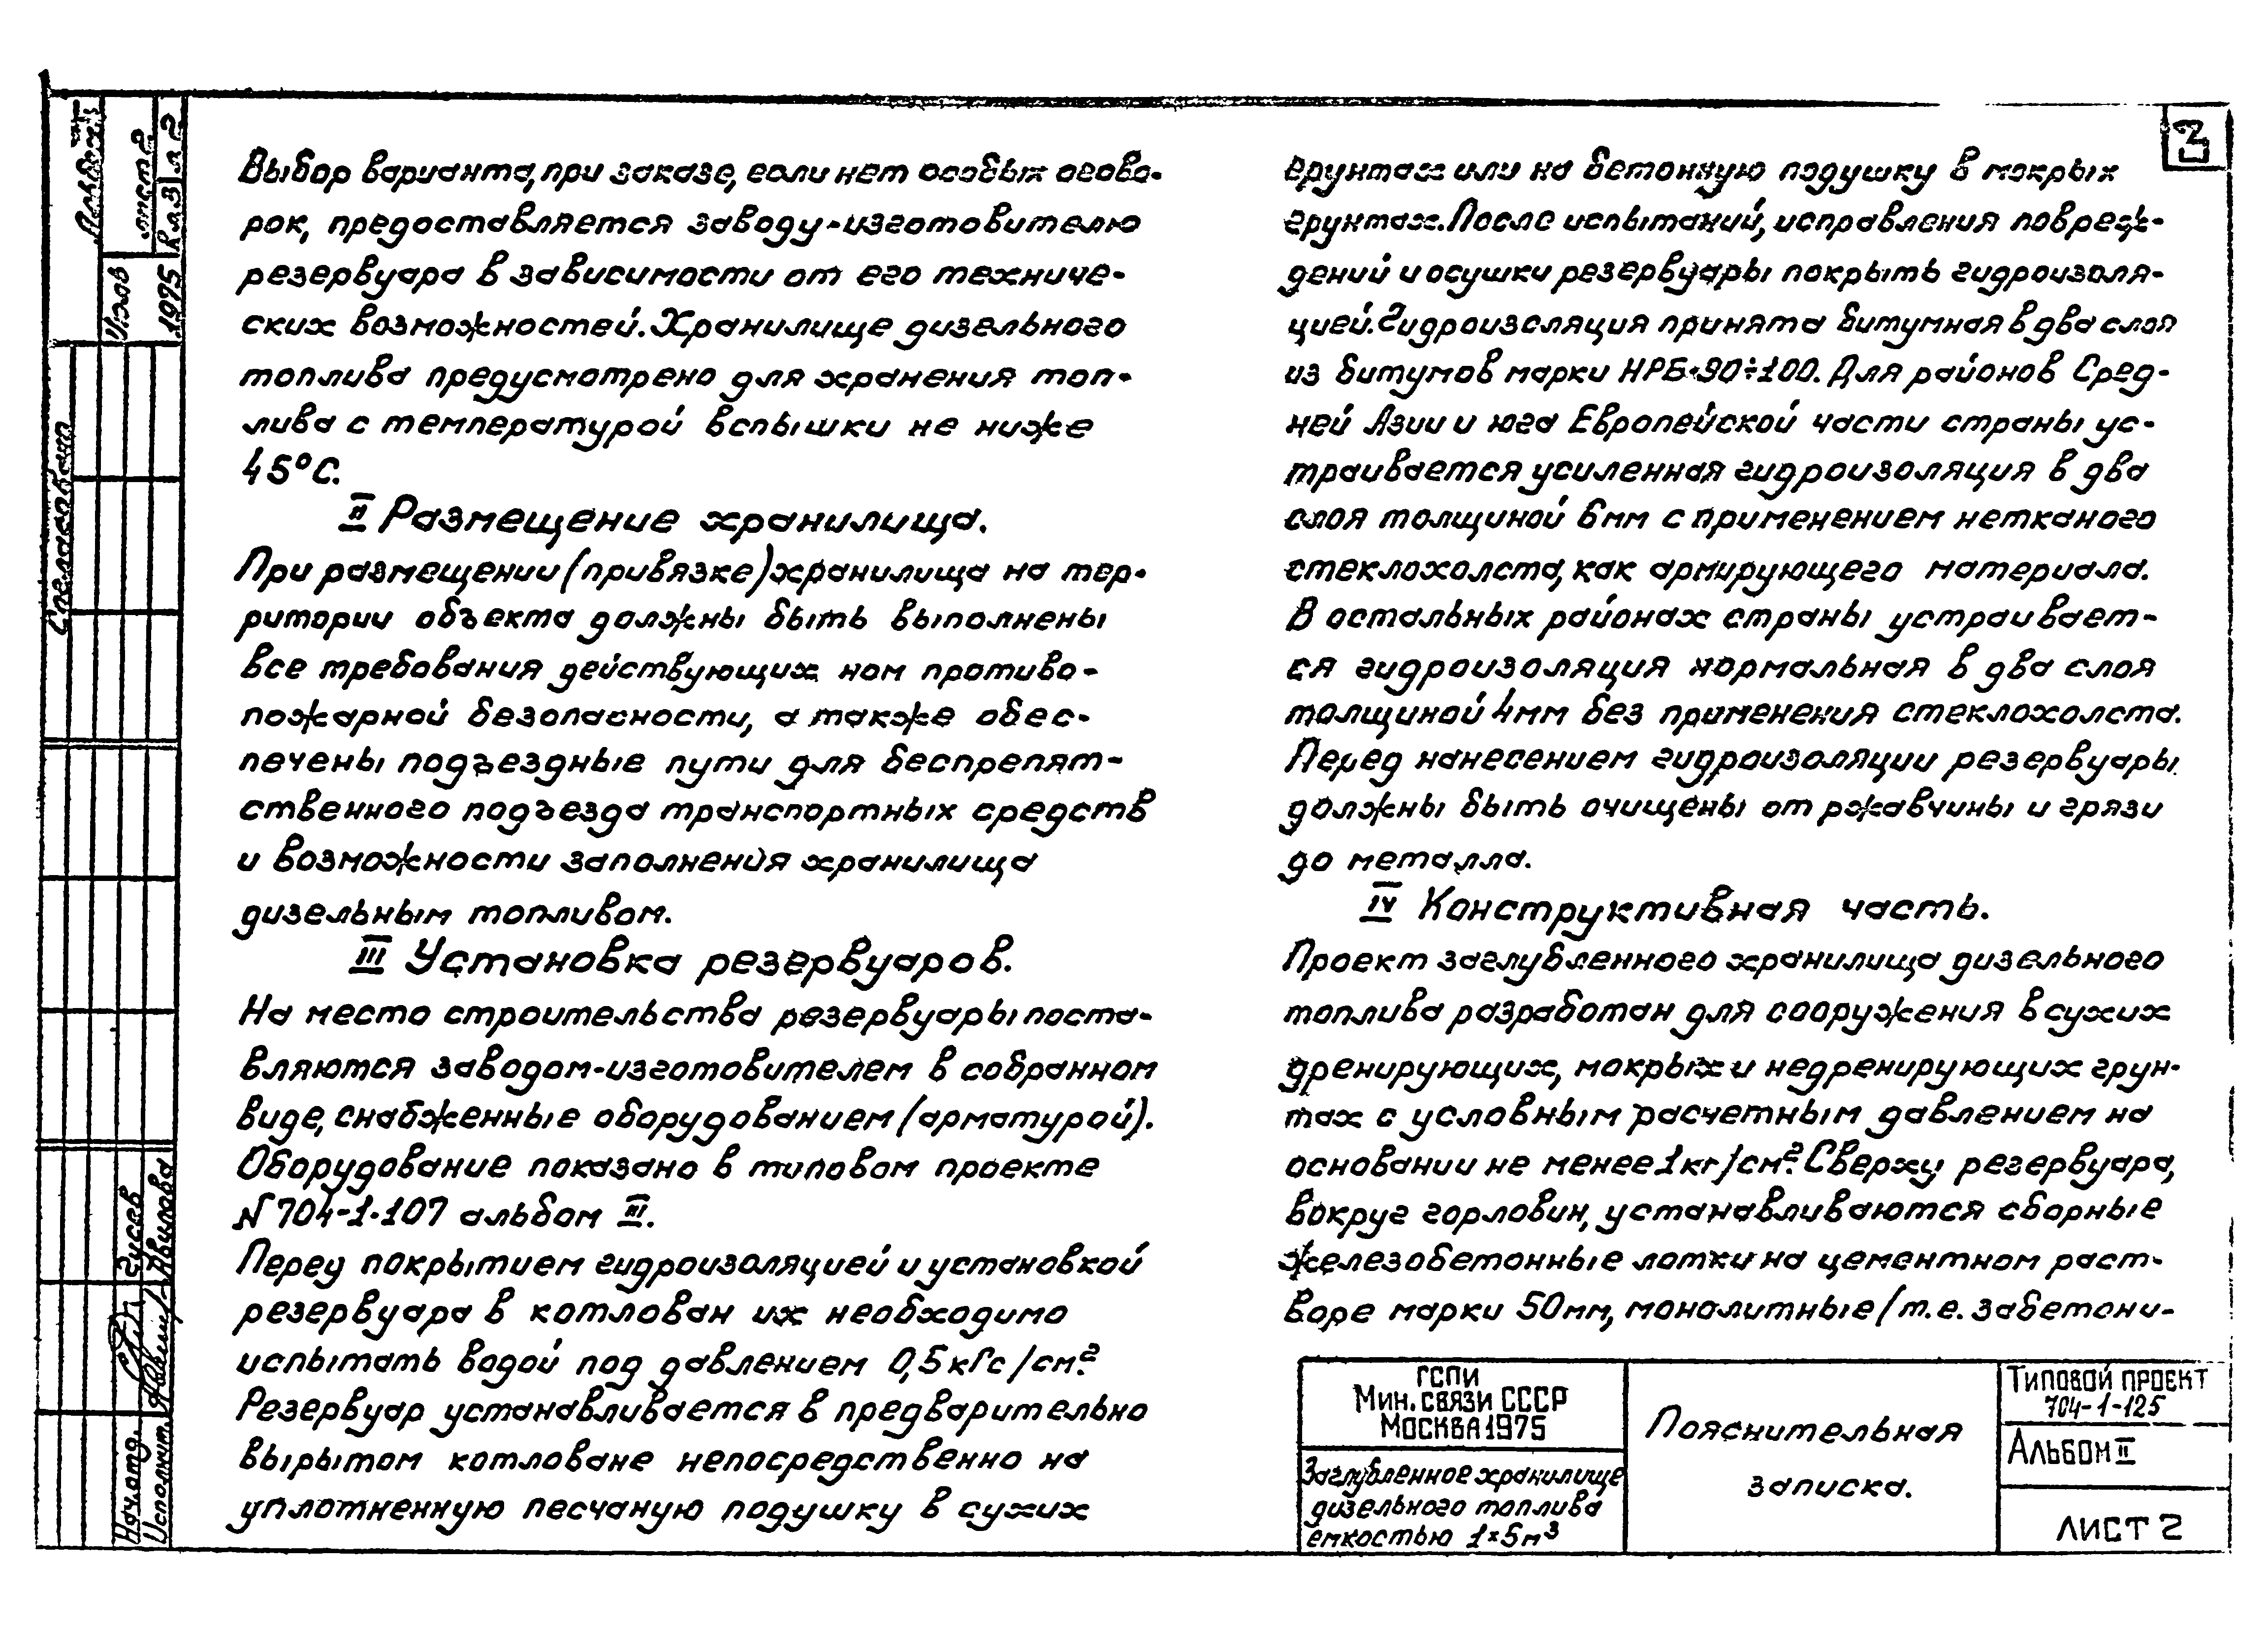 3
Выбор варианта, при заказе, если нет особых огово-
рок, предоставляется заводу-изготовителю
резервуара в зависимости от его техниче-
ских возможностей. Хранилище дизельного
топлива предусмотрено для хранения топ-
лива с температурой вспышки не ниже
45°С.
II Размещение хранилища.
При размещении (привязке) хранилища на тер-
ритории объекта должны быть выполнены
все требования действующих норм противо-
пожарной безопасности, а также обес-
печены подъездные пути для беспрепят-
ственного подъезда транспортных средств
и возможности заполнения хранилища
дизельным топливом.
III Установка резервуаров.
На место строительства резервуары поста-
вляются заводом-изготовителем в собранном
виде, снабженные оборудованием (арматурой).
Оборудование показано в типовом проекте
N 704-1-107 альбом III.
Перед покрытием гидроизоляцией и установкой
резервуара в котлован их необходимо
испытать водой под давлением 0,5 кГс/см².
Резервуар устанавливается в предварительно
вырытом котловане непосредственно на
уплотненную песчаную подушку в сухих
грунтах или на бетонную подушку в мокрых
грунтах. После испытаний, исправления повреж-
дений и осушки резервуары покрыть гидроизоля-
цией. Гидроизоляция принята битумная в два слоя
из битумов марки НРБ-90÷100. Для районов Сред-
ней Азии и юга Европейской части страны ус-
траивается усиленная гидроизоляция в два
слоя толщиной 6мм с применением нетканого
стеклохолста, как армирующего материала.
В остальных районах страны устраивает-
ся гидроизоляция нормальная в два слоя
толщиной 4мм без применения стеклохолста.
Перед нанесением гидроизоляции резервуары
должны быть очищены от ржавчины и грязи
до металла.
IV Конструктивная часть.
Проект заглубленного хранилища дизельного
топлива разработан для сооружения в сухих
дренирующих, мокрых и недренирующих грун-
тах с условным расчетным давлением на
основании не менее 1кг/см². Сверху резервуара,
вокруг горловин, устанавливаются сборные
железобетонные лотки на цементном раст-
воре марки 50мм, монолитные (т.е. забетони-
ГСПИ
Мин. связи СССР
Москва 1975
Заглубленное хранилище
дизельного топлива
емкостью 1×5м³
Пояснительная
записка.
Типовой проект
704-1-125
Альбом II
Лист 2
1975
Нач.отд.
Гусев
Исполнит.
Авилова